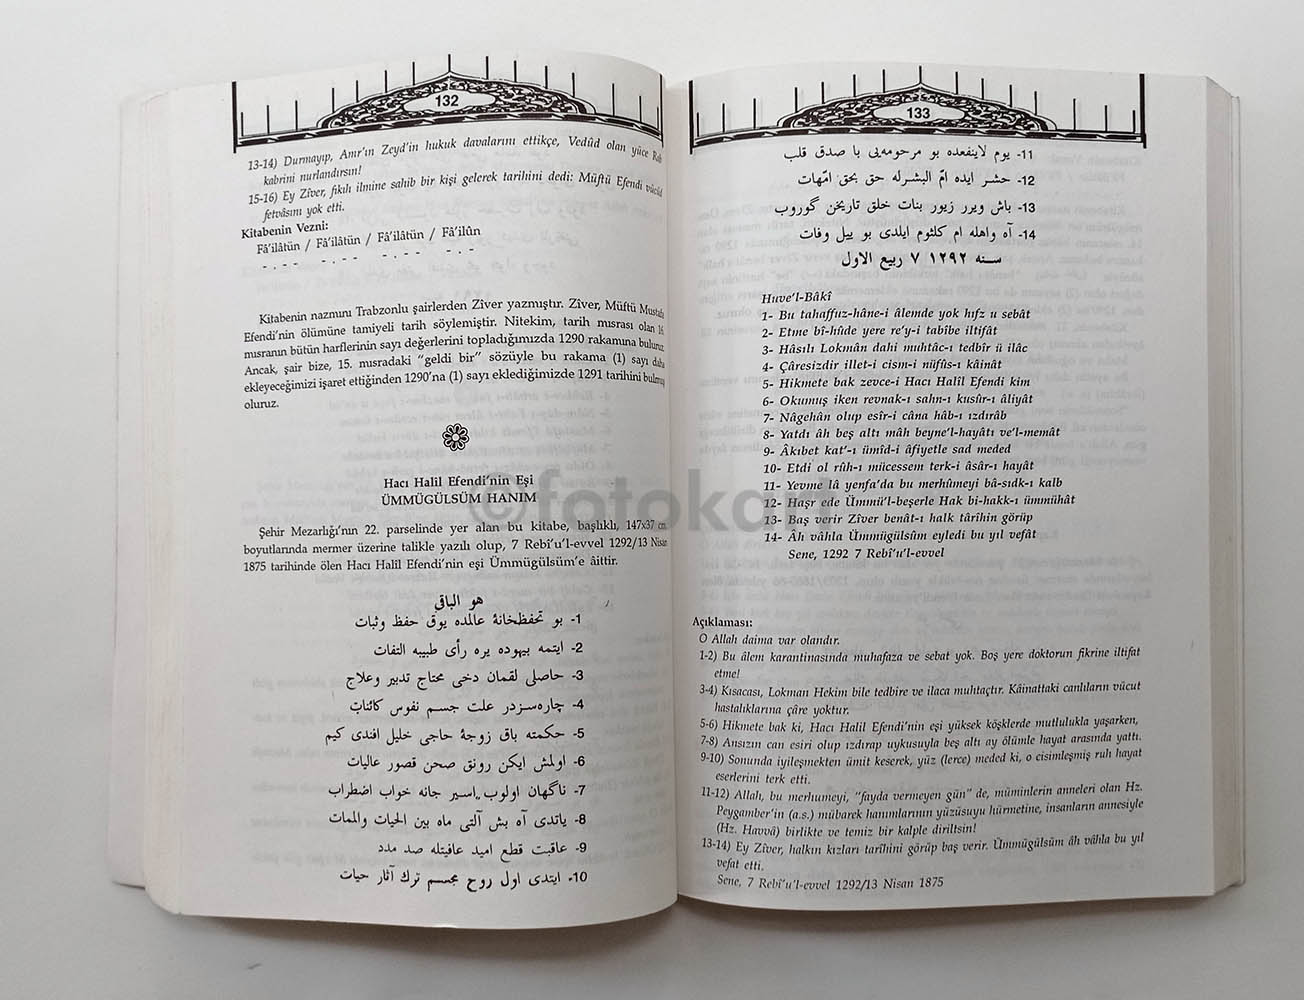 132
13-14) Durmayıp, Amr'ın Zeyd'in hukuk davalarını ettikçe, Vedûd olan yüce Rab
kabrini nurlandırsın!
15-16) Ey Zîver, fıkıh ilmine sahib bir kişi gelerek tarihini dedi: Müftü Efendi vücûd
fetvâsını yok etti.
Kitabenin Vezni:
Fâ'ilâtün / Fâ'ilâtün / Fâ'ilâtün / Fâ'ilün
- . - - - . - - - . - - - . -
Kitabenin nazmını Trabzonlu şairlerden Zîver yazmıştır. Zîver, Müftü Mustafa
Efendi'nin ölümüne tamiyeli tarih söylemiştir. Nitekim, tarih mısrası olan 16.
mısranın bütün harflerinin sayı değerlerini topladığımızda 1290 rakamına buluruz.
Ancak, şair bize, 15. mısradaki "geldi bir" sözüyle bu rakama (1) sayı daha
ekleyeceğimizi işaret ettiğinden 1290'na (1) sayı eklediğimizde 1291 tarihini bulmuş
oluruz.
Hacı Halil Efendi'nin Eşi
ÜMMÜGÜLSÜM HANIM
Şehir Mezarlığı'nın 22. parselinde yer alan bu kitabe, başlıklı, 147x37 cm.
boyutlarında mermer üzerine talikle yazılı olup, 7 Rebî'u'l-evvel 1292/13 Nisan
1875 tarihinde ölen Hacı Halil Efendi'nin eşi Ümmügülsüm'e âittir.
هو الباقي
1- بو تحفظخانهٔ عالمده يوق حفظ وثبات
2- ايتمه بيهوده يره رأى طبيبه التفات
3- حاصلى لقمان دخى محتاج تدبير وعلاج
4- چاره‌سزدر علت جسم نفوس كائنات
5- حكمته باق زوجهٔ حاجى خليل افندى كيم
6- اولمش ايكن رونق صحن قصور عاليات
7- ناگهان اولوب اسير جانه خواب اضطراب
8- ياتدى آه بش آلتى ماه بين الحيات والممات
9- عاقبت قطع اميد عافيتله صد مدد
10- ايتدى اول روح مجسم ترك آثار حيات
133
11- يوم لاينفعده بو مرحومه‌يى با صدق قلب
12- حشر ايده امّ البشرله حق بحق امّهات
13- باش ويرر زيور بنات خلق تاريخن گوروب
14- آه واهله ام كلثوم ايلدى بو ييل وفات
سنه ١٢٩٢ ٧ ربيع الاول
Huve'l-Bâkî
1- Bu tahaffuz-hâne-i âlemde yok hıfz u sebât
2- Etme bî-hûde yere re'y-i tabîbe iltifât
3- Hâsılı Lokmân dahi muhtâc-ı tedbîr ü ilâc
4- Çâresizdir illet-i cism-i nüfûs-ı kâinât
5- Hikmete bak zevce-i Hacı Halîl Efendi kim
6- Okumuş iken revnak-ı sahn-ı kusûr-ı âliyât
7- Nâgehân olup esîr-i câna hâb-ı ızdırâb
8- Yatdı âh beş altı mâh beyne'l-hayâtı ve'l-memât
9- Âkıbet kat'-ı ümîd-i âfiyetle sad meded
10- Etdi ol rûh-ı mücessem terk-i âsâr-ı hayât
11- Yevme lâ yenfa'da bu merhûmeyi bâ-sıdk-ı kalb
12- Haşr ede Ümmü'l-beşerle Hak bi-hakk-ı ümmühât
13- Baş verir Zîver benât-ı halk târîhin görüp
14- Âh vâhla Ümmügülsüm eyledi bu yıl vefât
Sene, 1292 7 Rebî'u'l-evvel
Açıklaması:
O Allah daima var olandır.
1-2) Bu âlem karantinasında muhafaza ve sebat yok. Boş yere doktorun fikrine iltifat
etme!
3-4) Kısacası, Lokman Hekim bile tedbire ve ilaca muhtaçtır. Kâinattaki canlıların vücut
hastalıklarına çâre yoktur.
5-6) Hikmete bak ki, Hacı Halil Efendi'nin eşi yüksek köşklerde mutlulukla yaşarken,
7-8) Ansızın can esiri olup ızdırap uykusuyla beş altı ay ölümle hayat arasında yattı.
9-10) Sonunda iyileşmekten ümit keserek, yüz (lerce) meded ki, o cisimleşmiş ruh hayat
eserlerini terk etti.
11-12) Allah, bu merhumeyi, "fayda vermeyen gün" de, müminlerin anneleri olan Hz.
Peygamber'in (a.s.) mübarek hanımlarının yüzüsuyu hürmetine, insanların annesiyle
(Hz. Havvâ) birlikte ve temiz bir kalple diriltsin!
13-14) Ey Zîver, halkın kızları tarihini görüp baş verir. Ümmügülsüm âh vâhla bu yıl
vefat etti.
Sene, 7 Rebî'u'l-evvel 1292/13 Nisan 1875
©fotokart